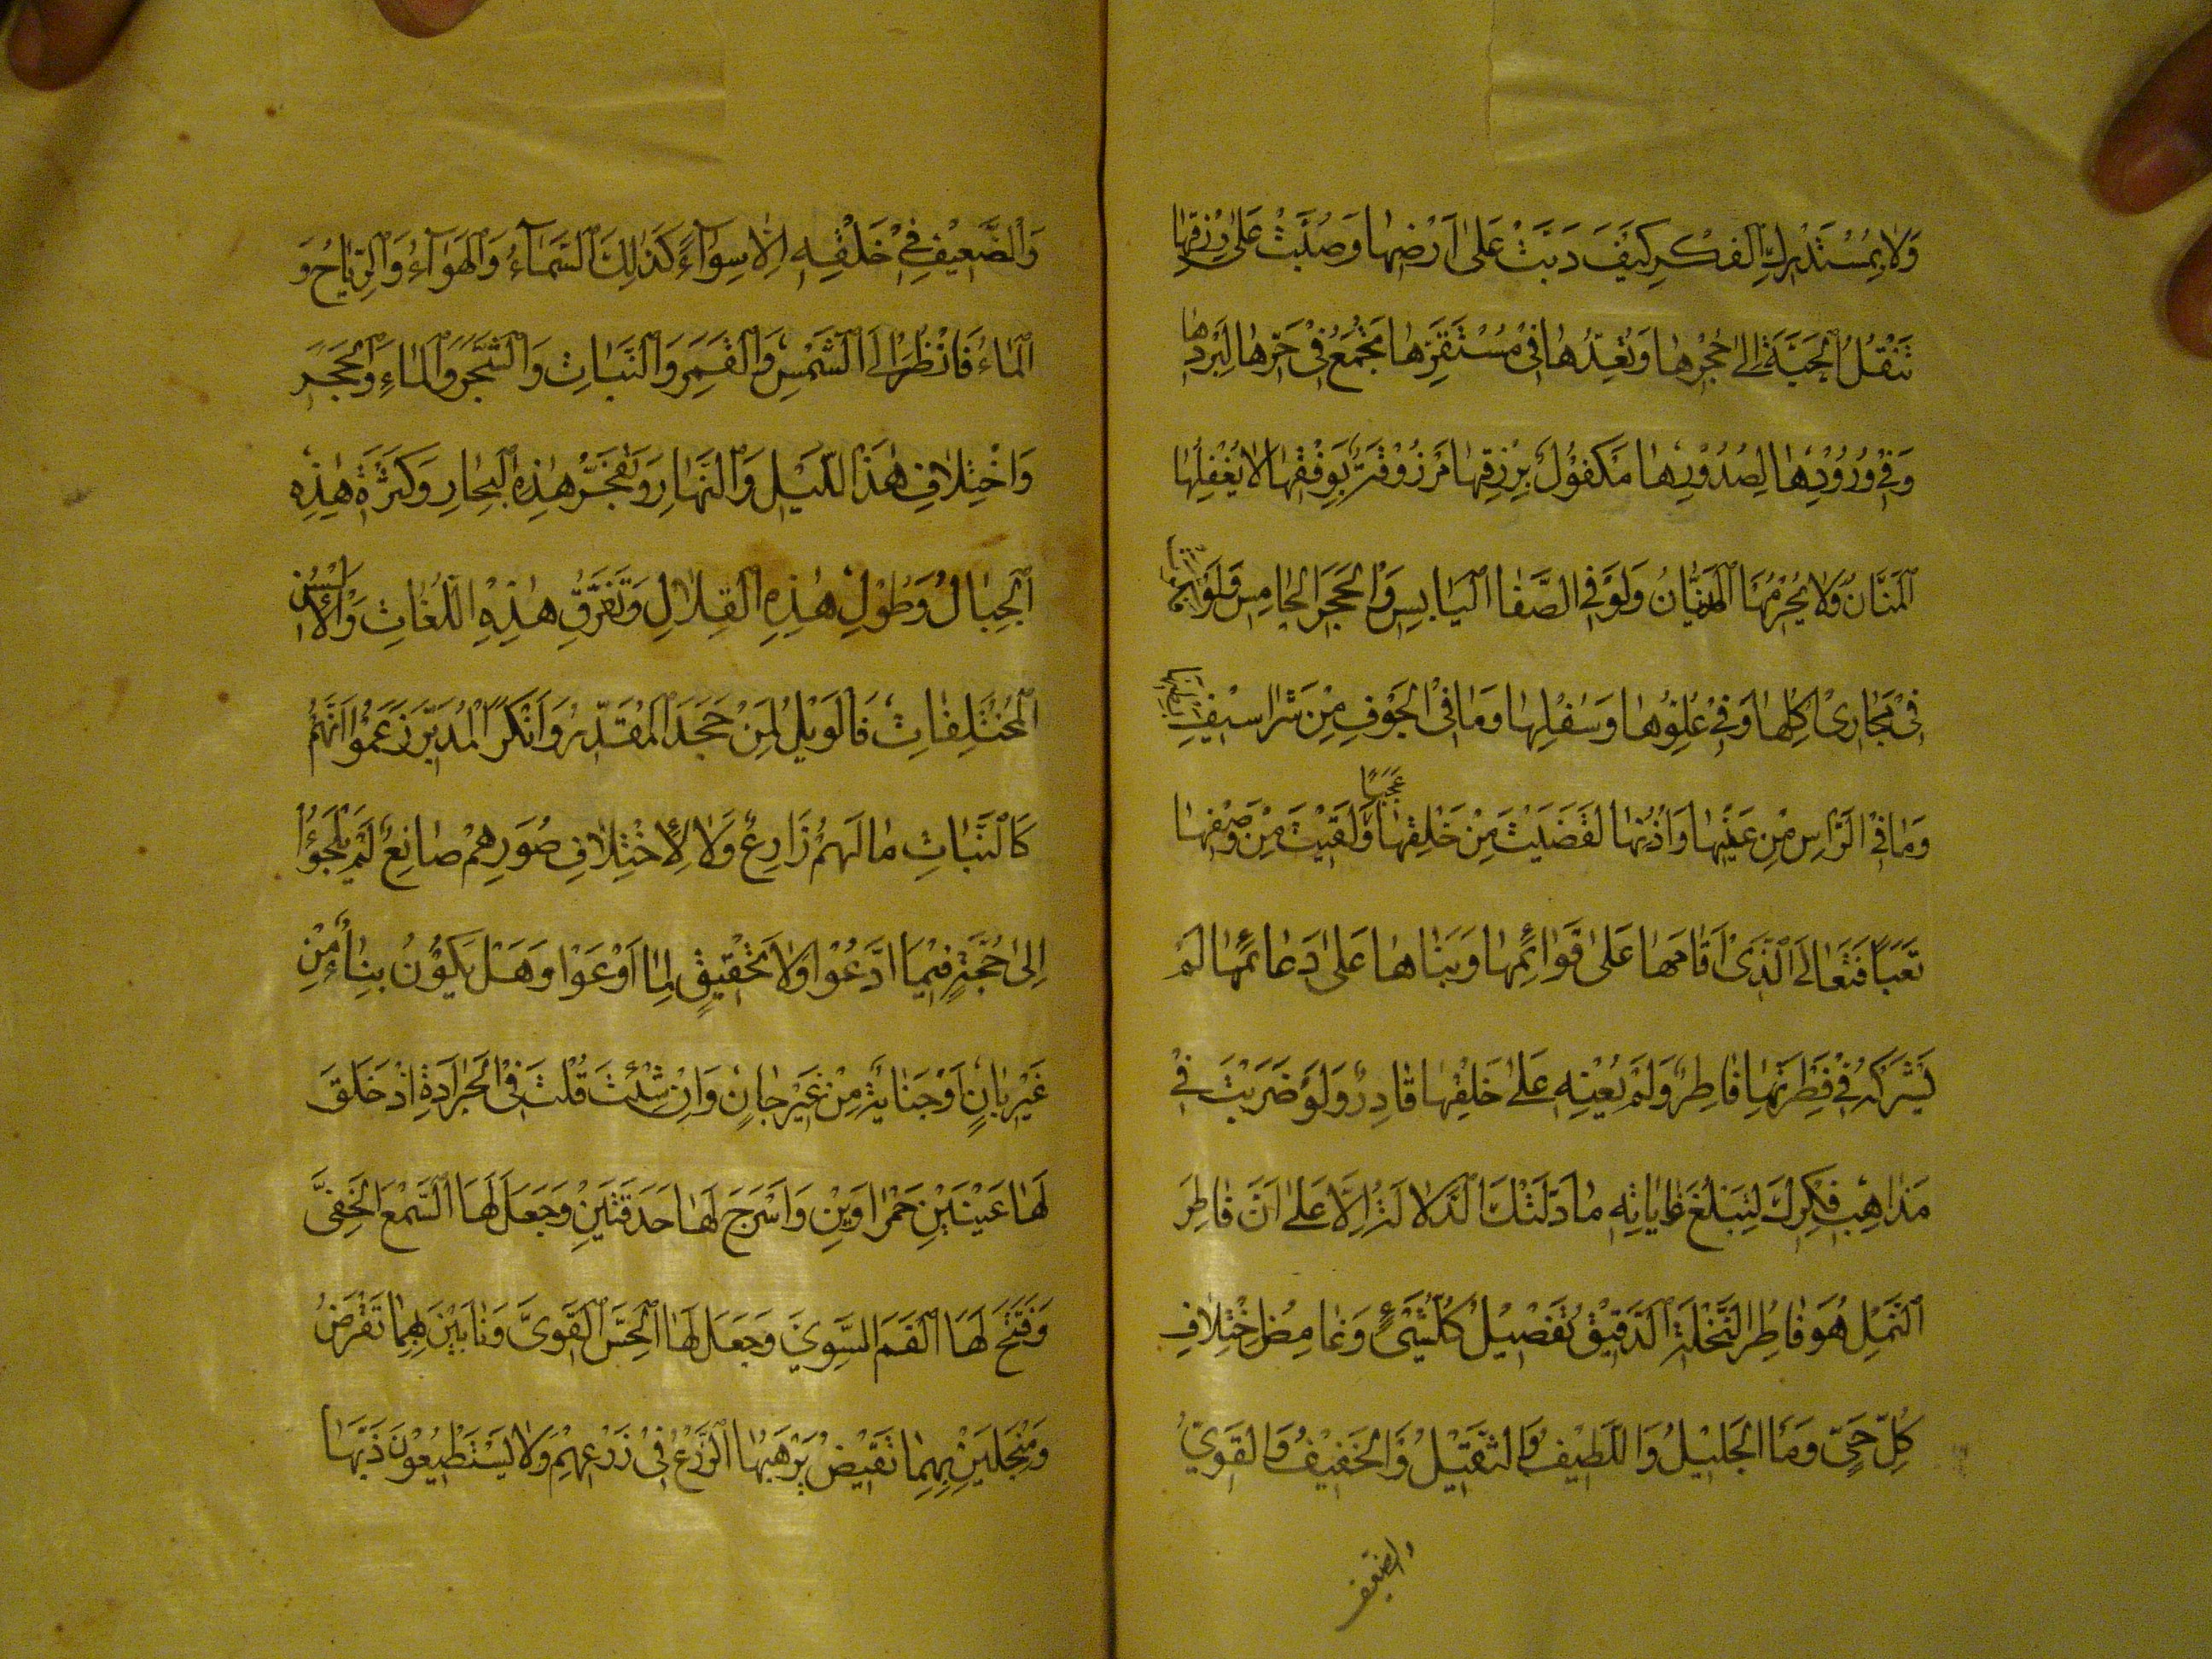 وَلَا بِمُسْتَدْرَكِ الْفِكْرِ كَيْفَ دَبَّتْ عَلَىٰ اَرْضِهَا وَصُبَّتْ عَلَىٰ رِزْقِهَا
تَنْقُلُ الْحَبَّةَ اِلَىٰ جُحْرِهَا وَتُعِدُّهَا فِي مُسْتَقَرِّهَا تَجْمَعُ فِي حَرِّهَا لِبَرْدِهَا
وَفِي وُرُودِهَا لِصُدُورِهَا مَكْفُولٌ بِرِزْقِهَا مَرْزُوقَةٌ بِوِفْقِهَا لَا يُغْفِلُهَا
الْمَنَّانُ وَلَا يَحْرِمُهَا الدَّيَّانُ وَلَوْ فِي الصَّفَا الْيَابِسِ وَالْحَجَرِ الْجَامِسِ وَلَوْ فَكَّرْتَ
فِي مَجَارِي اُكُلِهَا وَفِي عُلْوِهَا وَسُفْلِهَا وَمَا فِي الْجَوْفِ مِنْ شَرَاسِيفِ بَطْنِهَا
وَمَا فِي الرَّاْسِ مِنْ عَيْنِهَا وَاُذُنِهَا لَقَضَيْتَ مِنْ خَلْقِهَا عَجَبًا وَلَقِيتَ مِنْ وَصْفِهَا
تَعَبًا فَتَعَالَى الَّذِي اَقَامَهَا عَلَىٰ قَوَائِمِهَا وَبَنَاهَا عَلَىٰ دَعَائِمِهَا لَمْ
يَشْرَكْهُ فِي فِطْرَتِهَا فَاطِرٌ وَلَمْ يُعِنْهُ عَلَىٰ خَلْقِهَا قَادِرٌ وَلَوْ ضَرَبْتَ فِي
مَذَاهِبِ فِكْرِكَ لِتَبْلُغَ غَايَاتِهِ مَا دَلَّتْكَ الدَّلَالَةُ اِلَّا عَلَىٰ اَنَّ فَاطِرَ
النَّمْلِ هُوَ فَاطِرُ النَّخْلَةِ لِدَقِيقِ تَفْصِيلِ كُلِّ شَيْءٍ وَغَامِضِ اخْتِلَافِ
كُلِّ حَيٍّ وَمَا الْجَلِيلُ وَاللَّطِيفُ وَالثَّقِيلُ وَالْخَفِيفُ وَالْقَوِيُّ
والضعيف
وَالضَّعِيفُ فِي خَلْقِهِ اِلَّا سِوَآءً كَذَٰلِكَ السَّمَآءُ وَالْهَوَآءُ وَالرِّيَاحُ وَ
الْمَاءُ فَانْظُرْ اِلَى الشَّمْسِ وَالْقَمَرِ وَالنَّبَاتِ وَالشَّجَرِ وَالْمَاءِ وَالْحَجَرِ
وَاخْتِلَافِ هٰذَا اللَّيْلِ وَالنَّهَارِ وَتَفَجُّرِ هٰذِهِ الْبِحَارِ وَكَثْرَةِ هٰذِهِ
الْجِبَالِ وَطُولِ هٰذِهِ الْقِلَالِ وَتَفَرُّقِ هٰذِهِ اللُّغَاتِ وَالْاَلْسُنِ
الْمُخْتَلِفَاتِ فَالْوَيْلُ لِمَنْ جَحَدَ الْمُقَدِّرَ وَاَنْكَرَ الْمُدَبِّرَ زَعَمُوا اَنَّهُمْ
كَالنَّبَاتِ مَا لَهُمْ زَارِعٌ وَلَا لِاخْتِلَافِ صُوَرِهِمْ صَانِعٌ لَمْ يَلْجَؤُا
اِلَىٰ حُجَّةٍ فِيمَا ادَّعَوْا وَلَا تَحْقِيقٍ لِمَا اَوْعَوْا وَهَلْ يَكُونُ بِنَاءٌ مِنْ
غَيْرِ بَانٍ اَوْ جِنَايَةٌ مِنْ غَيْرِ جَانٍ وَاِنْ شِئْتَ قُلْتَ فِي الْجَرَادَةِ اِذْ خَلَقَ
لَهَا عَيْنَيْنِ حَمْرَاوَيْنِ وَاَسْرَجَ لَهَا حَدَقَتَيْنِ وَجَعَلَ لَهَا السَّمْعَ الْخَفِيَّ
وَفَتَحَ لَهَا الْفَمَ السَّوِيَّ وَجَعَلَ لَهَا الْحِسَّ الْقَوِيَّ وَنَابَيْنِ بِهِمَا تَقْرِضُ
وَمِنْجَلَيْنِ بِهِمَا تَقْبِضُ يَرْهَبُهَا الزُّرَّاعُ فِي زَرْعِهِمْ وَلَا يَسْتَطِيعُونَ ذَبَّهَا